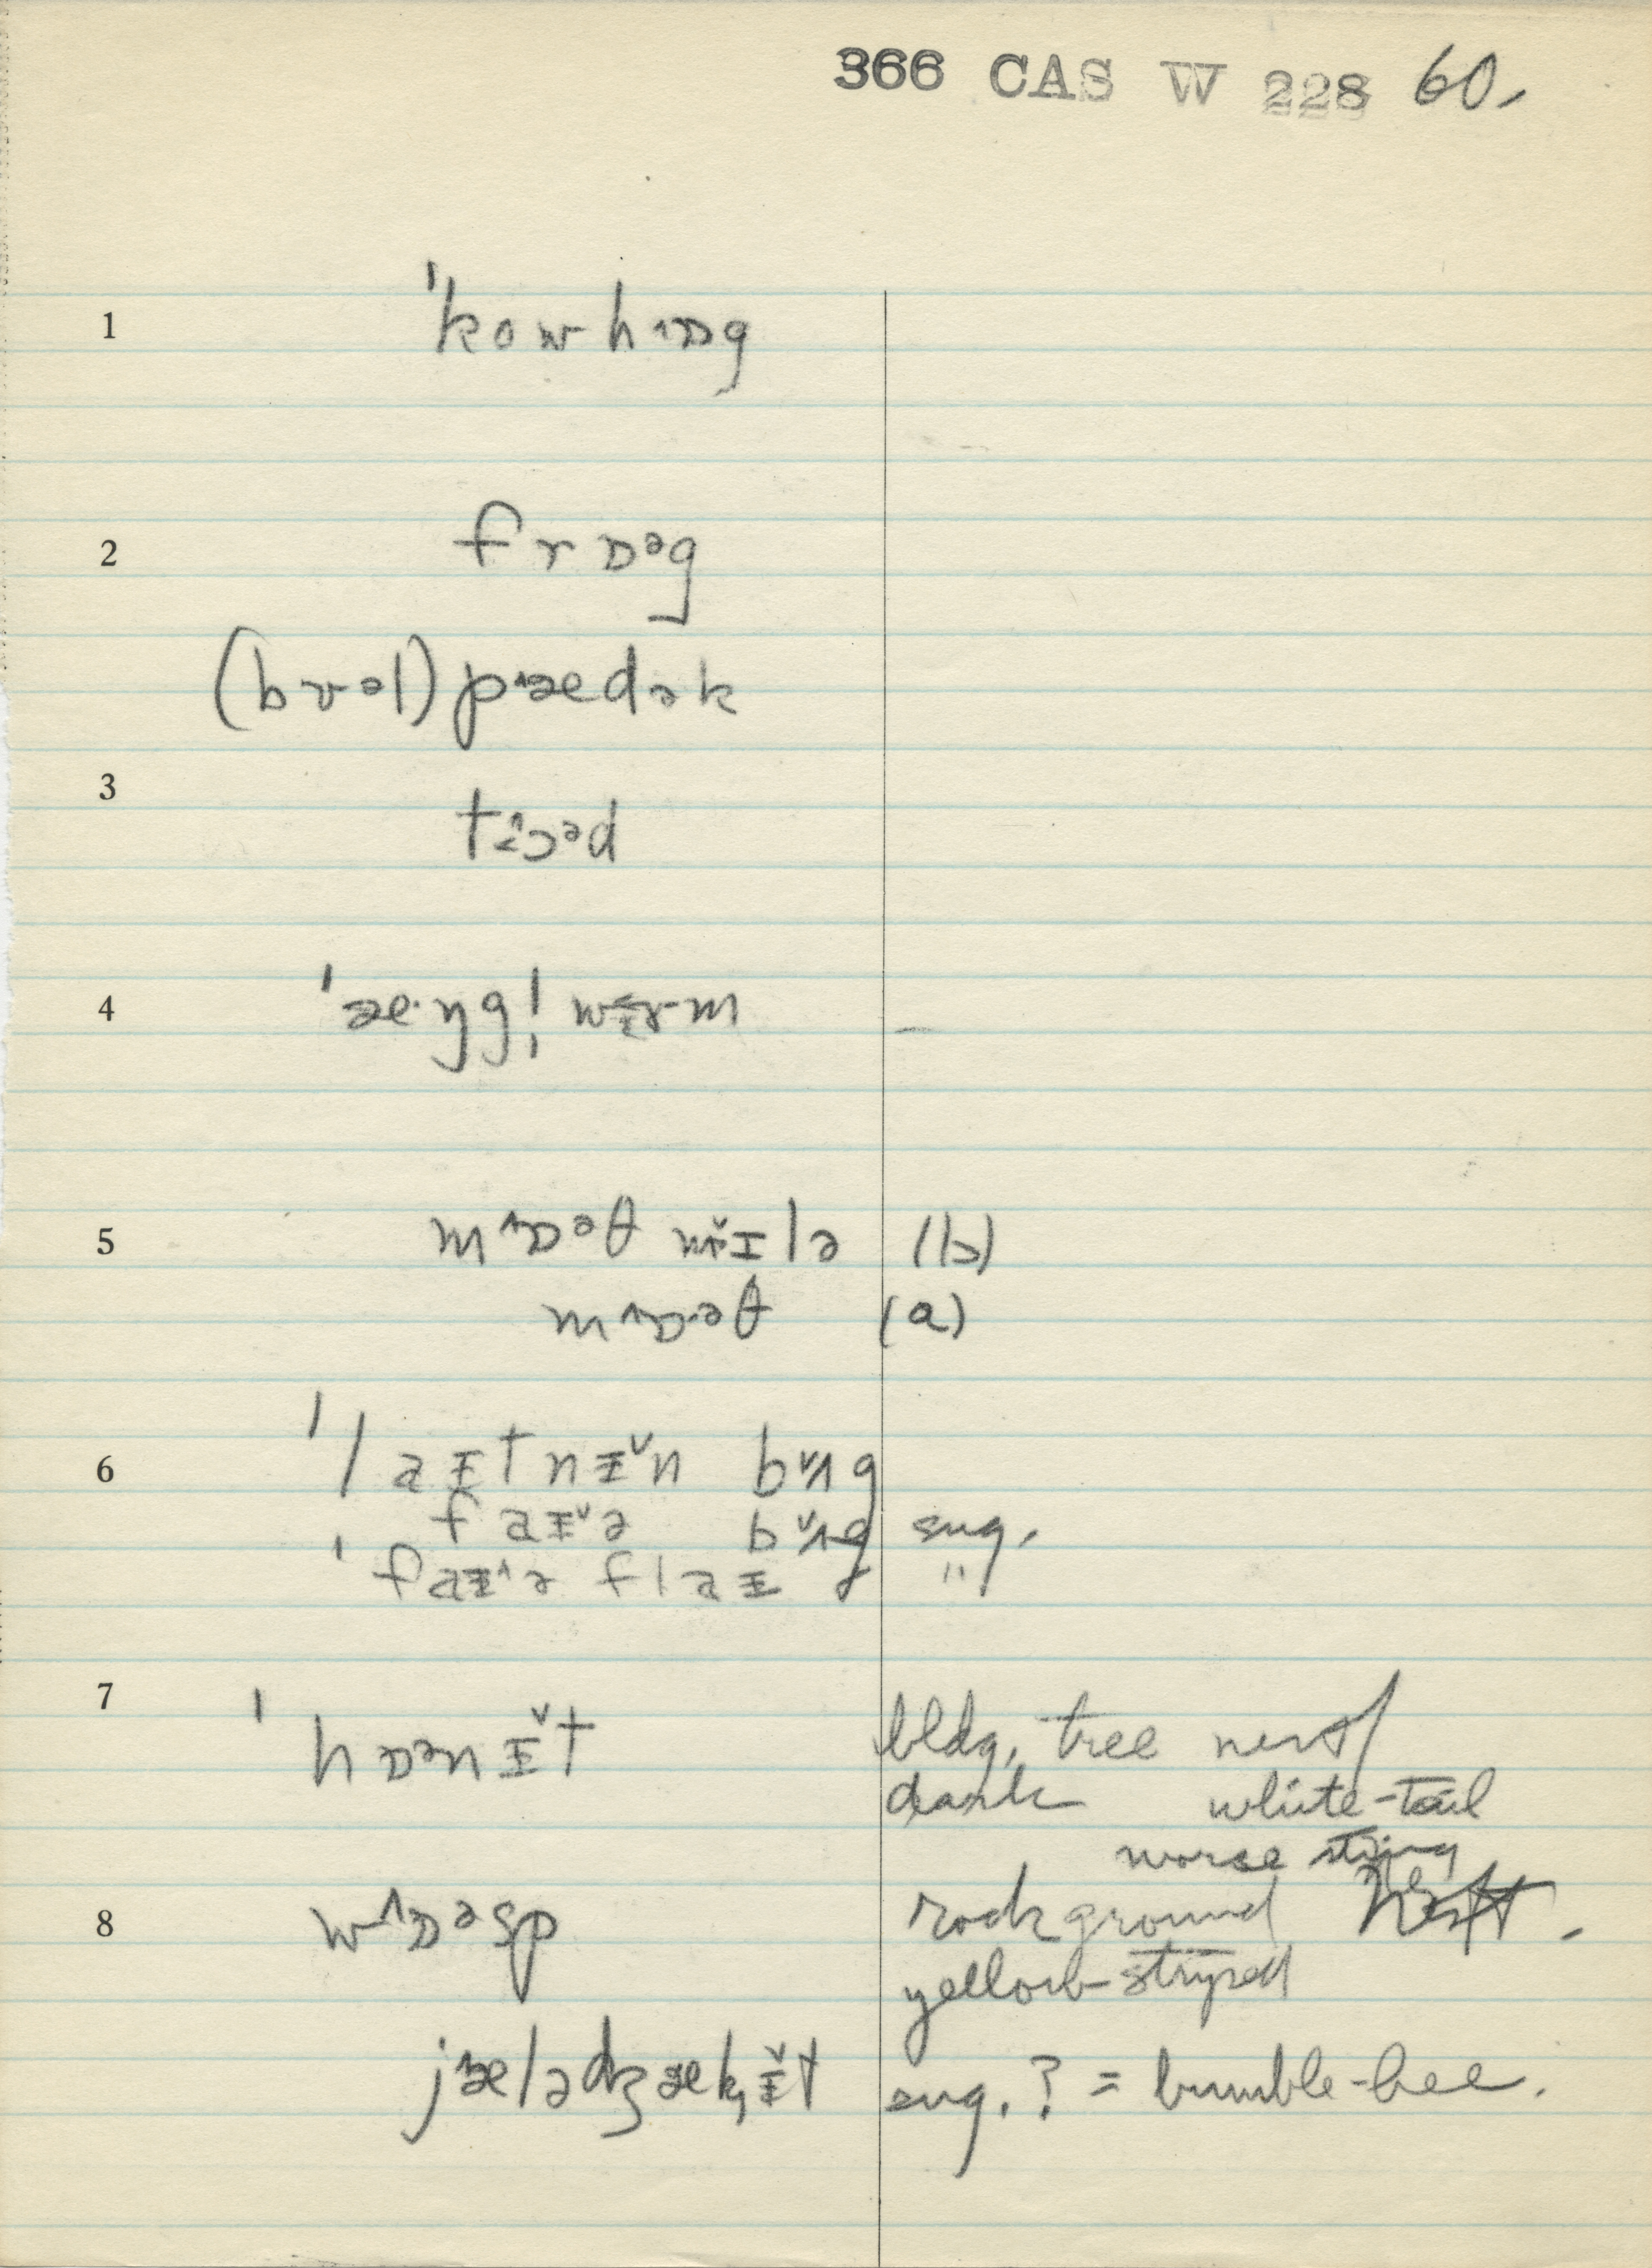 366 CAS W 228 60.
1 ˈkowhɒ˄g
2 frɒᵊg
(bʊəl) pædək
3 tɔᵊd
4 ˈæ·ŋg|wɜrm
5 mɒ˄ᵊθ mɪ̌lə (b)
mɒ˄·əθ (a)
6 ˈlaɪtnɪ̌n bʌ̌g
faɪ̌ə bʌ̌g sug.
ˈfaɪ˄ə flaɪ "
7 ˈhɒᵊnɪ̌t bldg, tree nest
dark white-tail
worse sting
8 wɒ˄ᵊsp rock ground nest.
yellow-striped
jælədʒækɪ̌t sug. ? = bumble-bee.